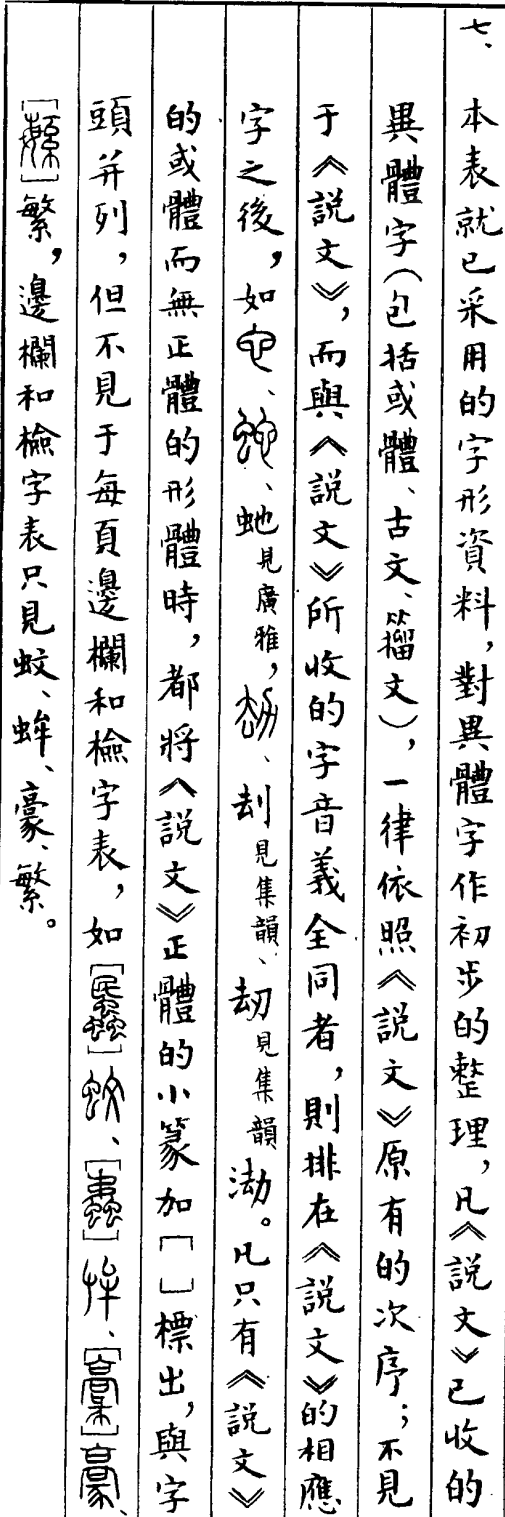 七、本表就已采用的字形資料，對異體字作初步的整理，凡《說文》已收的
異體字（包括或體、古文、籀文），一律依照《說文》原有的次序；不見
于《說文》，而與《說文》所收的字音義全同者，則排在《說文》的相應
字之後，如它、蛇、虵見廣雅，刦見集韻、刧見集韻。凡只有《說文》
的或體而無正體的形體時，都將《說文》正體的小篆加［］標出，與字
頭并列，但不見于每頁邊欄和檢字表，如［］蚊、［］蛑、［］豪、
［］繁，邊欄和檢字表只見蚊、蛑、豪、繁。